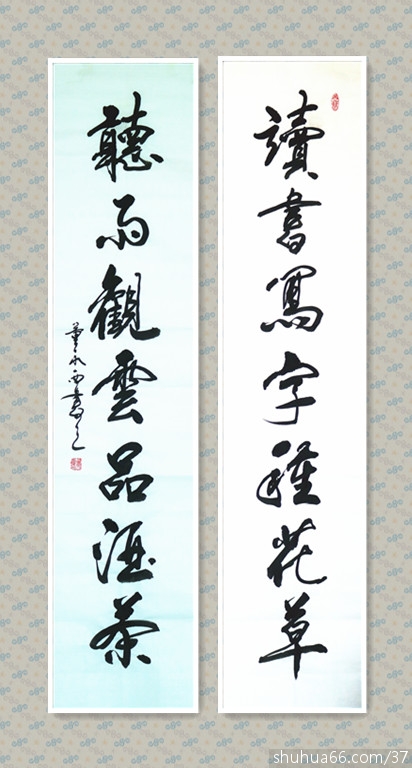 讀書寫字種花草
聽雨觀雲品酒茶
董永西書
shuhua66.com/37